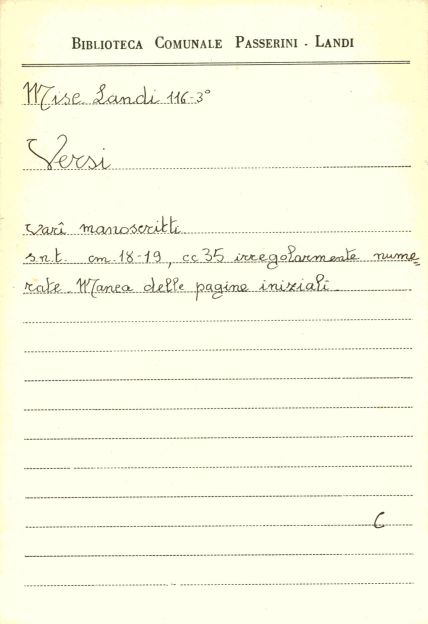 BIBLIOTECA COMUNALE PASSERINI - LANDI
Misc. Landi 116-3°
Versi
varî manoscritti
s.n.t. cm. 18-19, cc 35 irregolarmente nume=
rate. Manca delle pagine iniziali.
C